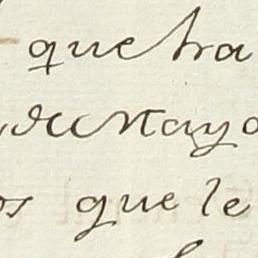 que tra
de Mayo
os que le